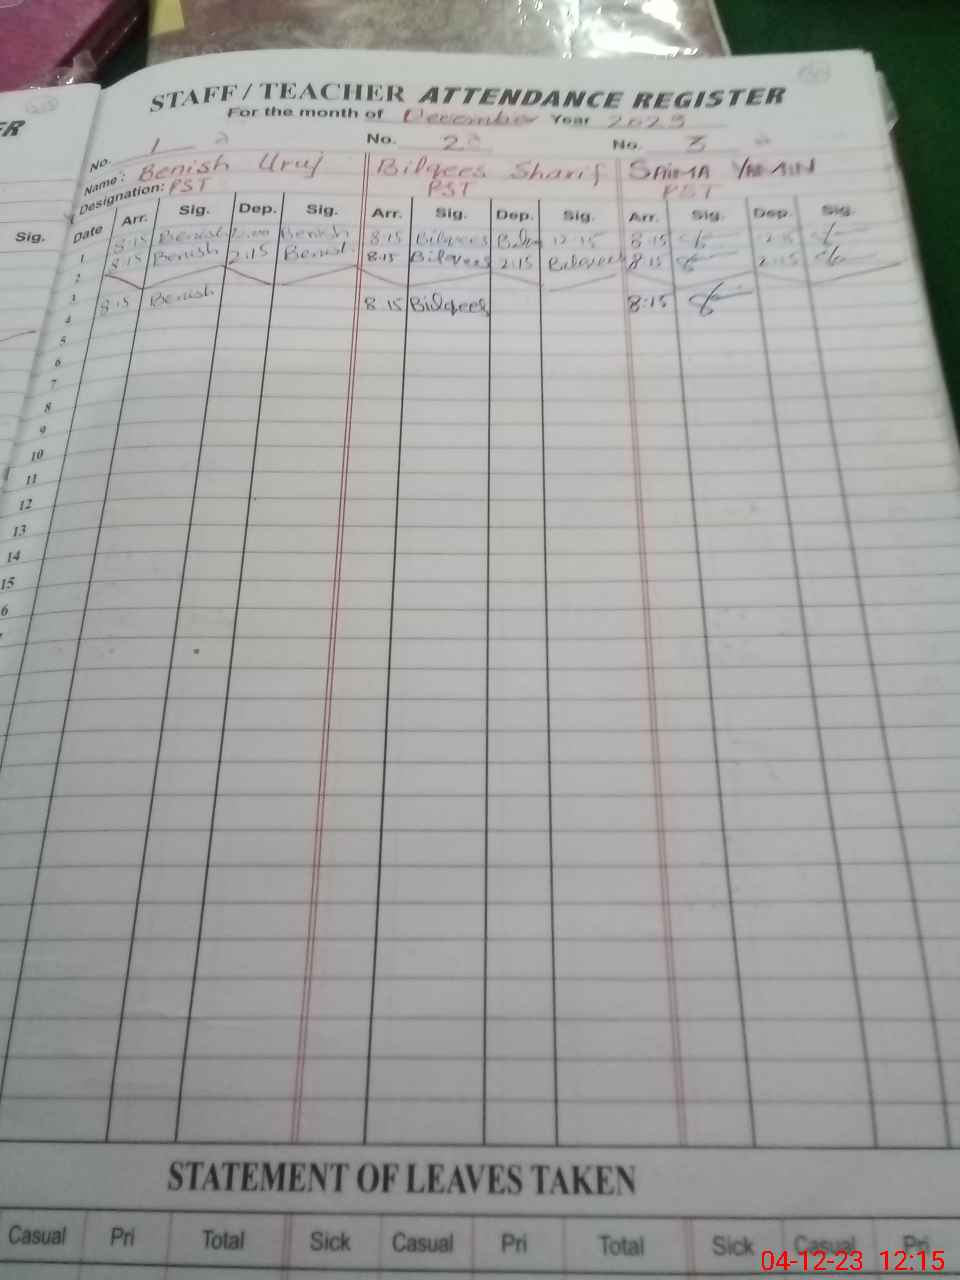 ER
STAFF / TEACHER ATTENDANCE REGISTER
For the month of December Year 2023
No. 1 No. 2 No. 3
Name: Benish Uruj Bilqees Sharif SAIMA YAMIN
Designation: PST PST PST
Sig. Date Arr. Sig. Dep. Sig. Arr. Sig. Dep. Sig. Arr. Sig. Dep. Sig.
1 8:15 Benish Benish 8:15 Bilqees 12:15 8:15
2 8:15 Benish 2:15 Benish 8:15 Bilqees 2:15 Bilqees 8:15 2:15
3
4 8:15 Benish 8:15 Bilqees 8:15
5
6
7
8
9
10
11
12
13
14
15
6
STATEMENT OF LEAVES TAKEN
Casual Pri Total Sick Casual Pri Total Sick Casual Pri
04-12-23 12:15